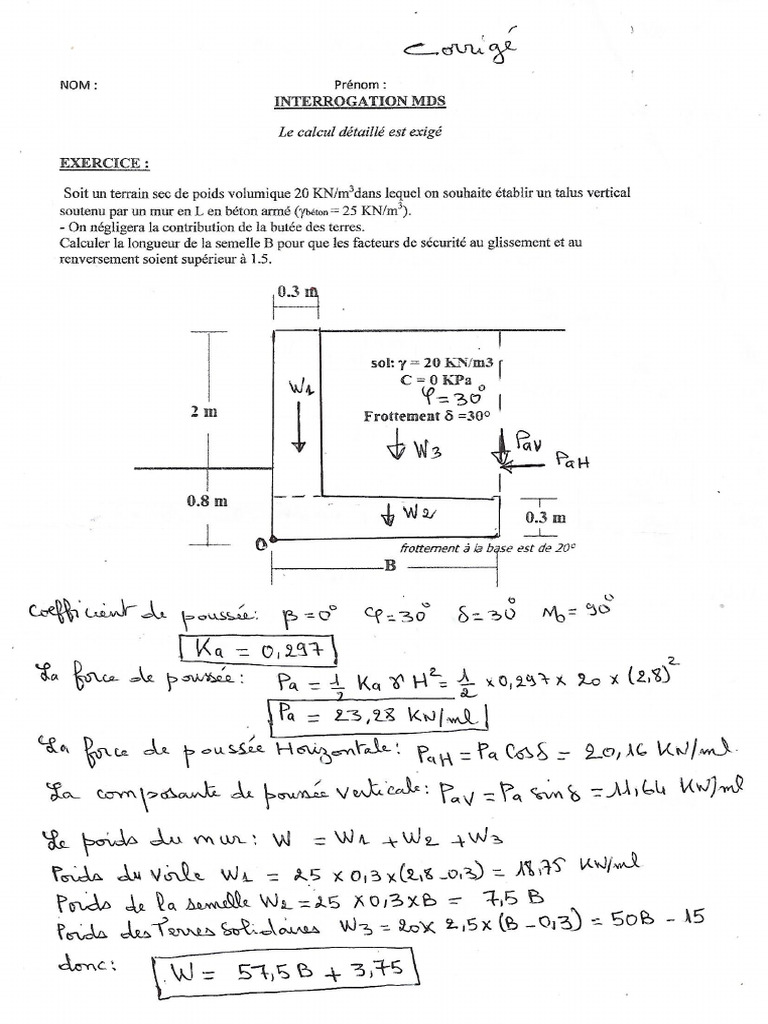 Corrigé
NOM : Prénom :
INTERROGATION MDS
Le calcul détaillé est exigé
EXERCICE :
Soit un terrain sec de poids volumique 20 KN/m³dans lequel on souhaite établir un talus vertical
soutenu par un mur en L en béton armé (γbéton = 25 KN/m³).
- On négligera la contribution de la butée des terres.
Calculer la longueur de la semelle B pour que les facteurs de sécurité au glissement et au
renversement soient supérieur à 1.5.
0.3 m
sol: γ = 20 KN/m3
C = 0 KPa
φ=30°
W1
2 m
Frottement δ =30°
W3
PaV
PaH
0.8 m
W2
0.3 m
O
frottement à la base est de 20°
B
Coefficient de poussée: β=0° φ=30° δ=30° η₀=90°
Ka = 0,297
La force de poussée: Pa = 1/2 Ka γ H² = 1/2 x 0,297 x 20 x (2,8)²
Pa = 23,28 KN/ml
La force de poussée Horizontale: PaH = Pa Cosδ = 20,16 KN/ml.
La composante de poussée verticale: PaV = Pa sinδ = 11,64 KN/ml
Le poids du mur: W = W1 + W2 + W3
Poids du voile W1 = 25 x 0,3 x (2,8-0,3) = 18,75 KN/ml
Poids de la semelle W2 = 25 x 0,3 x B = 7,5 B
Poids des Terres Solidaires W3 = 20 x 2,5 x (B-0,3) = 50B - 15
donc: W = 57,5 B + 3,75